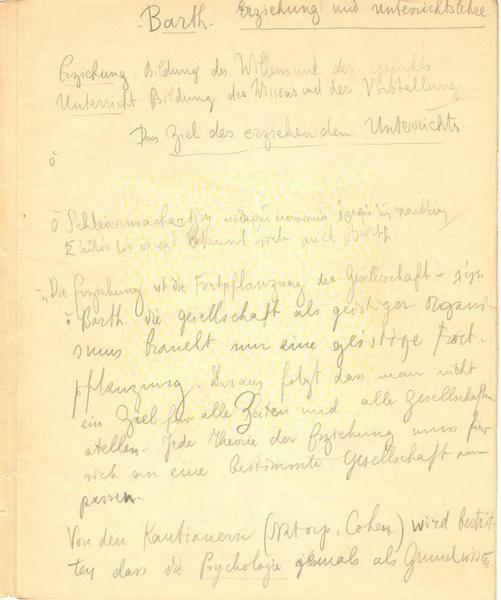 Barth. Erziehung und Unterrichtslehre
Erziehung - Bildung des Willens und des Gefühls
Unterricht - Bildung des Wissens und der Vorstellung
Das Ziel des erziehenden Unterrichts
ὁ
ὁ Schleiermacher
bekennt sich auch Barth
„Die Erziehung ist die Fortpflanzung der Gesellschaft -
ὁ Barth. die gesellschaft als geistiger organi-
smus braucht nur eine geistige Fort-
pflanzung. Daraus folgt dass man nicht
ein Ziel für alle Zeiten und alle Gesellschaften
stellen. Jede Theorie der Erziehung muss für
sich an eine bestimmte Gesellschaft an-
passen.
Von den Kantianern (Natorp, Cohen) wird bestrit-
ten dass die Psychologie jemals als